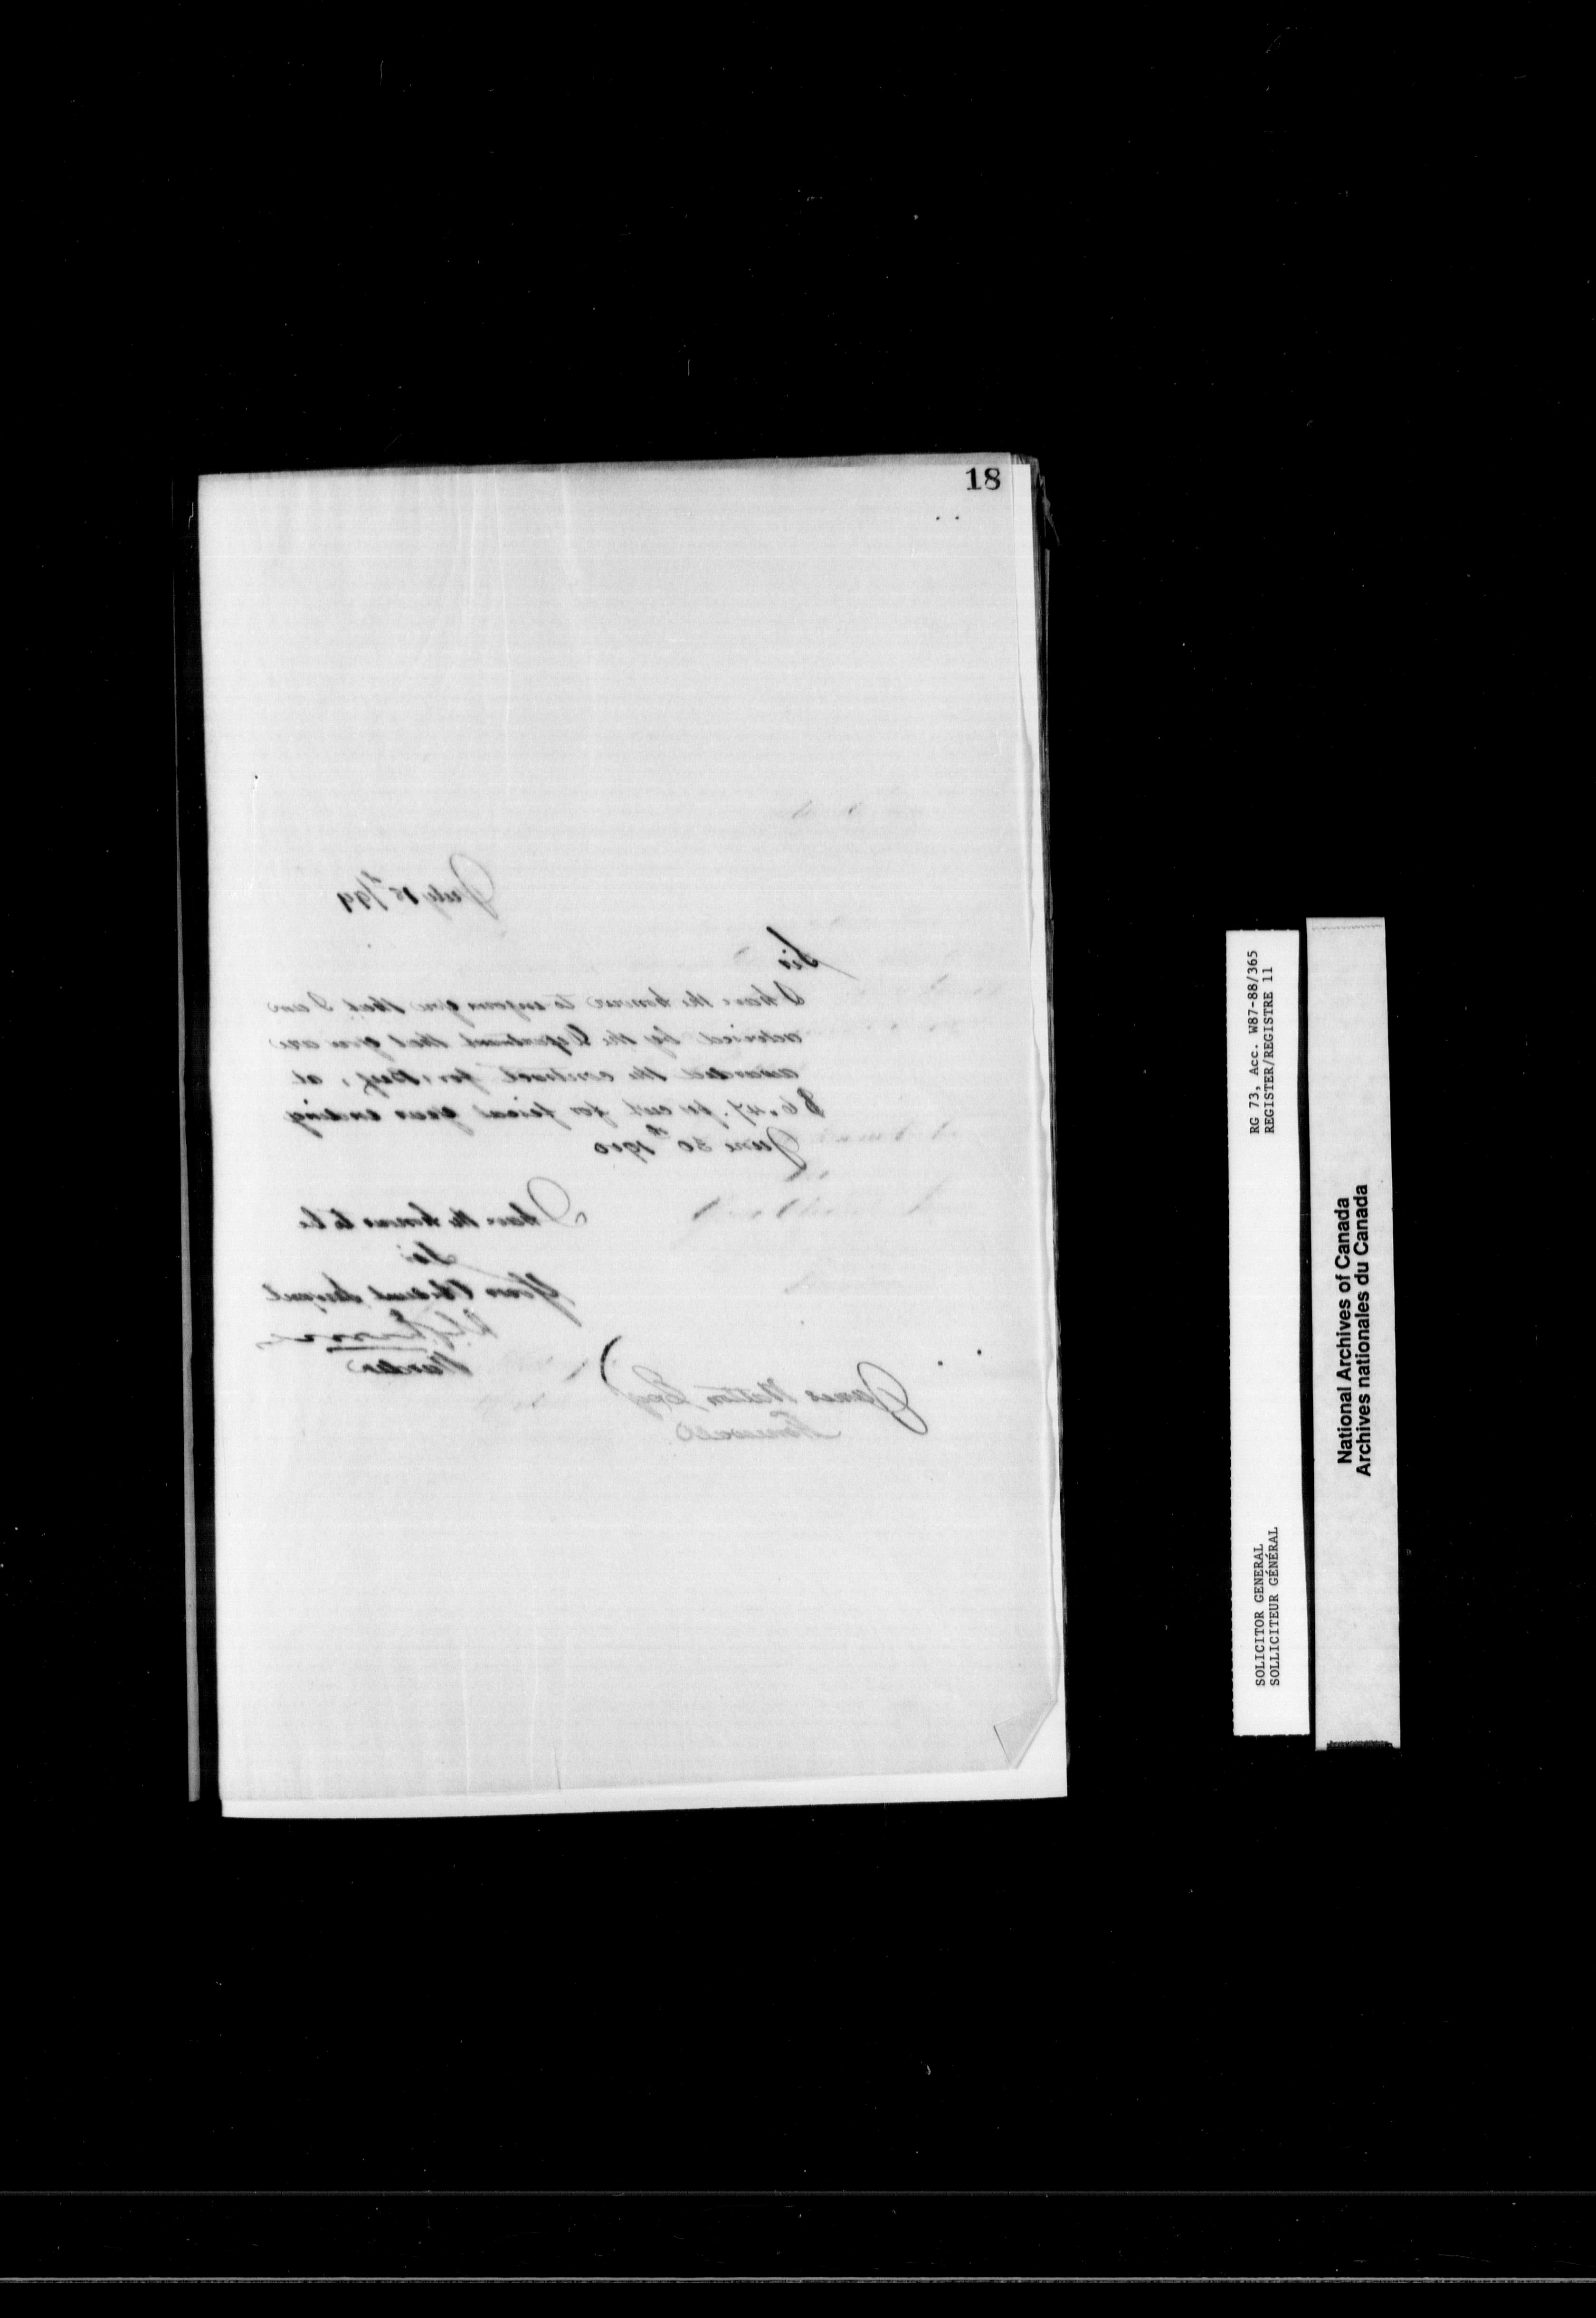 18
July 15th/99
Sir
I have the honour to inform you that I am
advised by the Department that you are
awarded the contract for Beef, at
$6.47. per cwt for fiscal year ending
June 30th 1900
I have the honour to be
Sir
Your Obedient Servant
Warden
James Esqr
RG 73, Acc. W87-88/365
REGISTER/REGISTRE 11
SOLICITOR GENERAL
SOLLICITEUR GÉNÉRAL
National Archives of Canada
Archives nationales du Canada